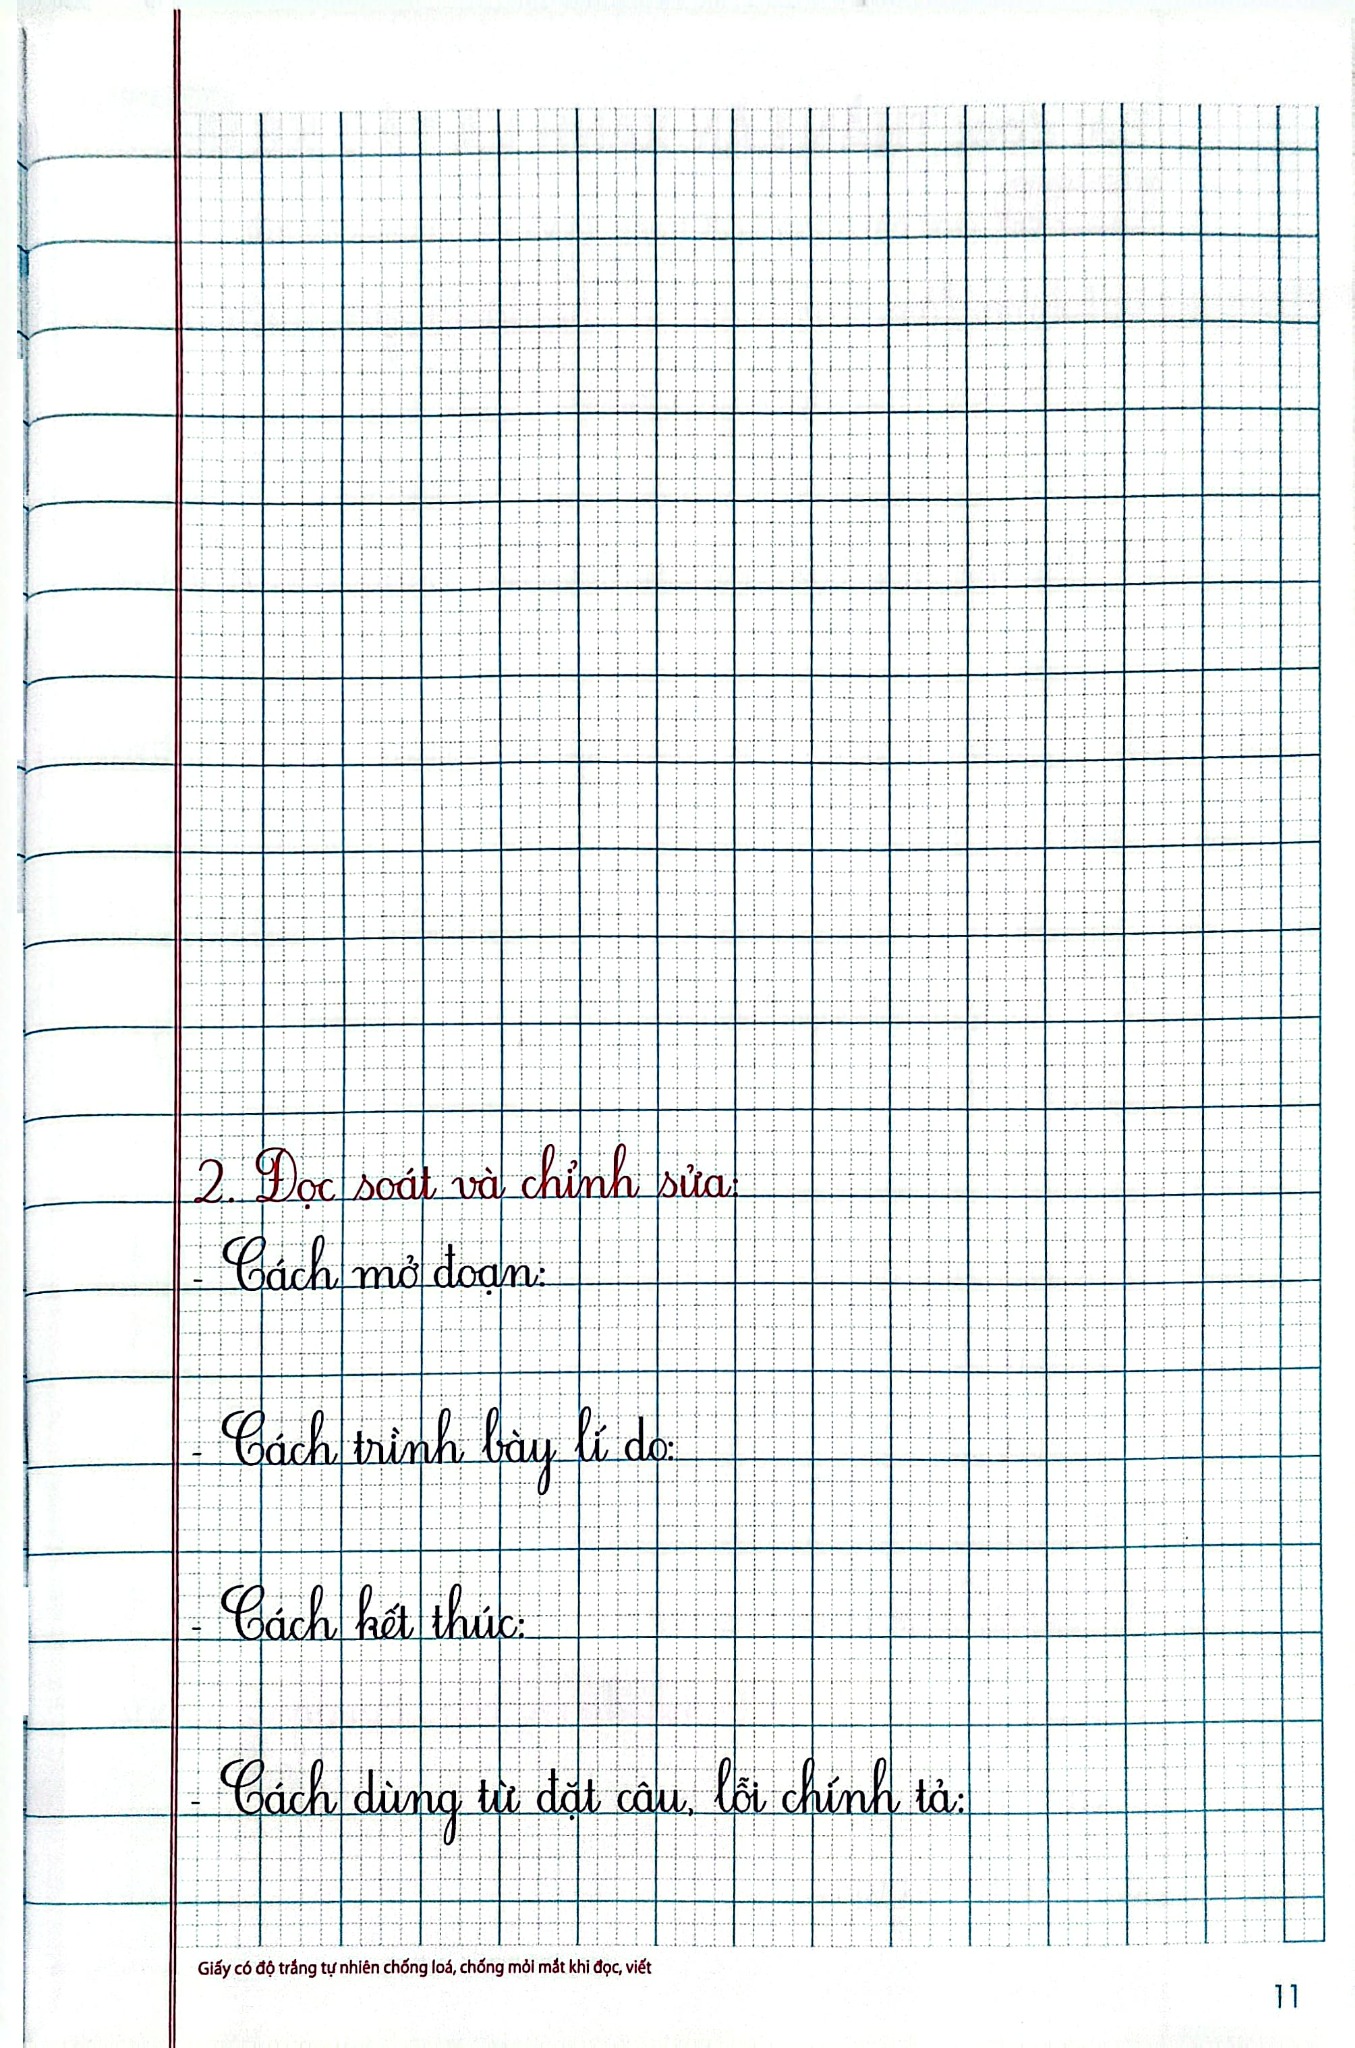 2. Đọc soát và chỉnh sửa:
- Cách mở đoạn:
- Cách trình bày lí do:
- Cách kết thúc:
- Cách dùng từ đặt câu, lỗi chính tả:
Giấy có độ trắng tự nhiên chống loá, chống mỏi mắt khi đọc, viết
11